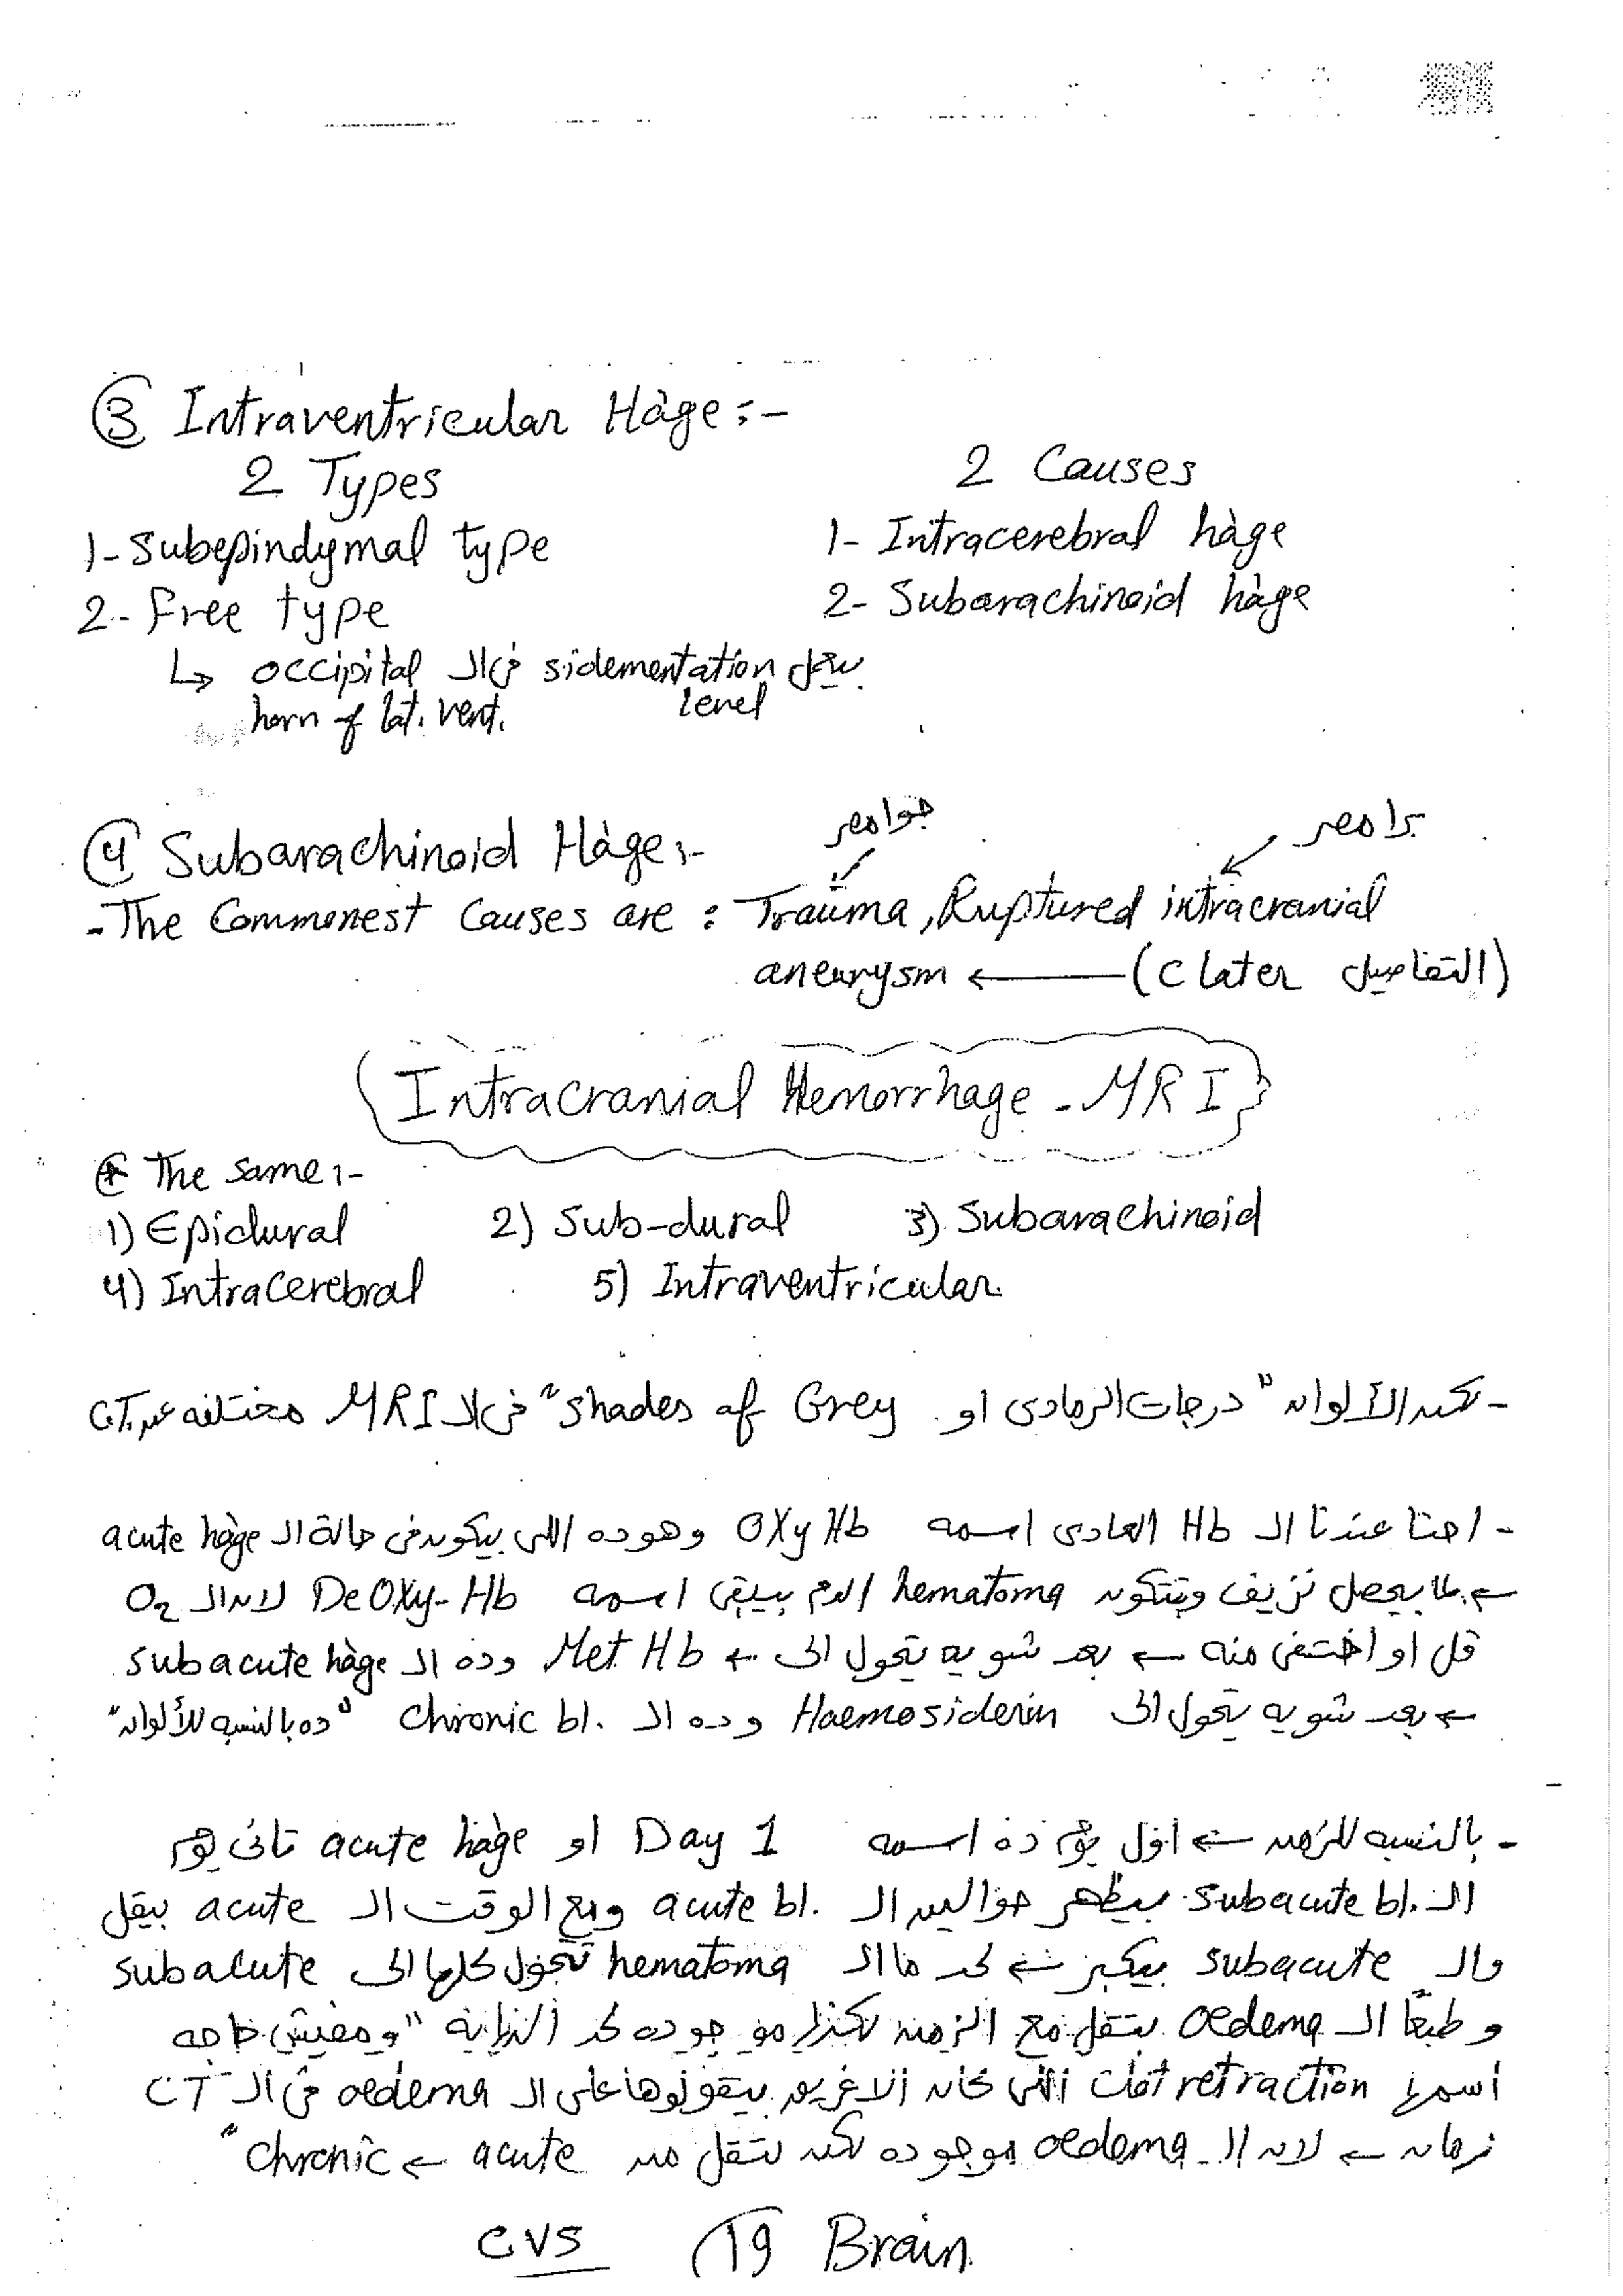 ③ Intraventricular Hàge :-
2 Types
2 Causes
1- Subepindymal type
1- Intracerebral hàge
2- Free type
2- Subarachinoid hàge
↳ بيعمل sidementation level في الـ occipital horn of lat. vent.
④ Subarachinoid Hàge :-
جوا مصر
برا مصر
- The Commonest Causes are : Trauma, Ruptured intracranial
aneurysm ← (التفاصيل C later)
Intracranial Hemorrhage - MRI
The same :-
1) Epidural 2) Sub-dural 3) Subarachinoid
4) Intracerebral 5) Intraventricular
- لكن الألوان "درجات الرمادى او Shades of Grey" فى الـ MRI مختلفه عن C.T
- احنا عندنا الـ Hb العادى اسمه OXy Hb وهو ده اللى بيكون فى حالة الـ acute hàge
← لما بيحصل نزيف وبتتكون hematoma الدم بيبقى اسمه DeOXy-Hb لان الـ O₂
قل او اختفى منه ← بعد شويه يتحول الى ← Met Hb وده الـ subacute hàge
← بعد شويه يتحول الى Haemosiderin وده الـ chronic bl. "ده بالنسبه للألوان"
- بالنسبه للزمن ← اول يوم ده اسمه Day 1 او acute hàge تانى يوم
الـ subacute bl. بيظهر حوالين الـ acute bl. ومع الوقت الـ acute بيقل
والـ subacute بيكبر ← لحد ما الـ hematoma تتحول كلها الى subacute
و طبعًا الـ oedema بتقل مع الزمن لكنها موجوده لحد النهاية "ومفيش حاجه
اسمها clot retraction اللى كان الاغريق بيقولوها على الـ oedema فى الـ CT
زمان ← لان الـ oedema موجوده لكن بتقل من acute ← chronic"
CVS 19 Brain